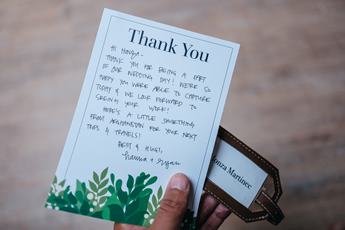 Thank You
Hi Monza-
Thank you for being a part
of our wedding day! We're so
happy you were able to capture
today & we look forward to
seeing your work!
Here's a little something
from Afghanistan for your next
trips & travels!
Best & hugs,
+
onza Martinez